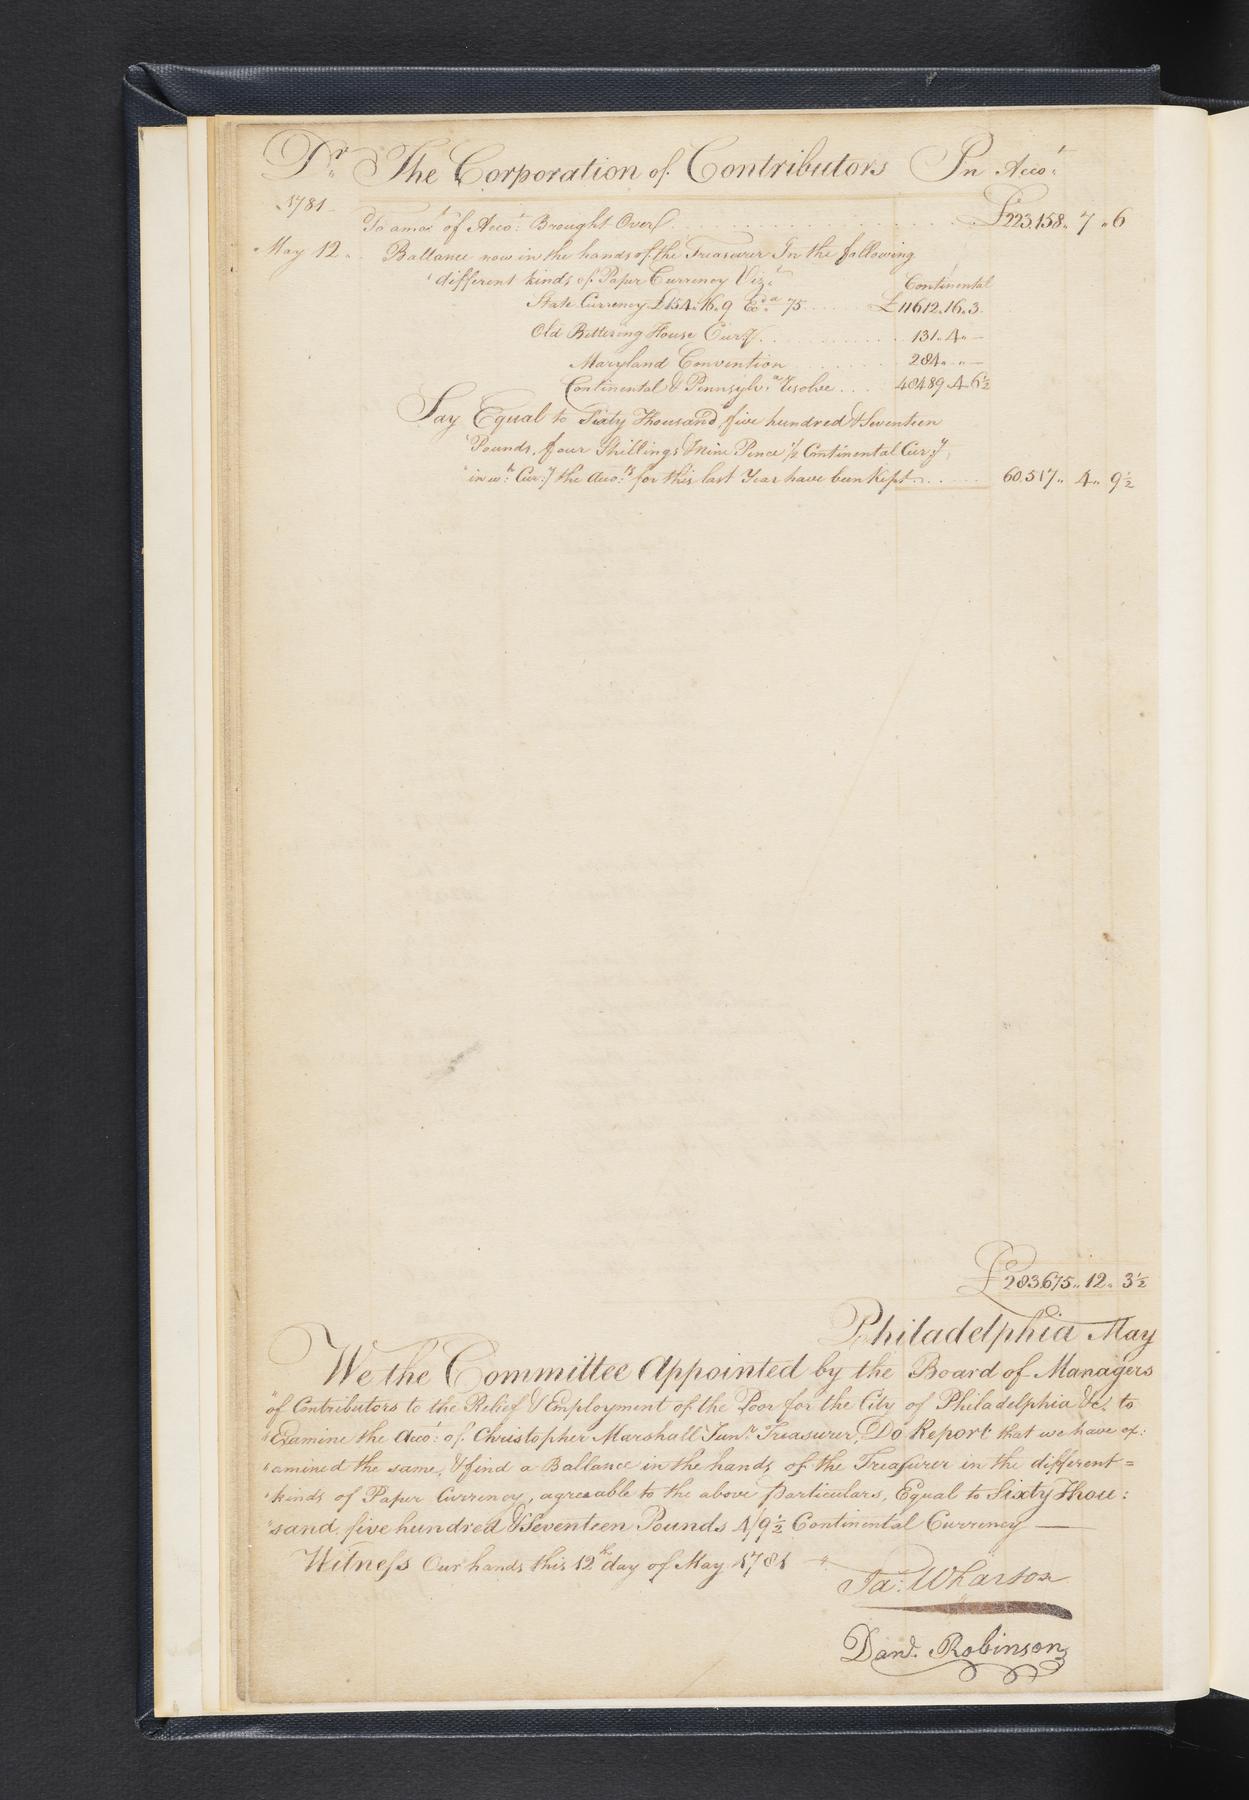 Dr The Corporation of Contributors In Acco:t
1781
To amo:t of Acco:t Brought Over £223.158 „ 7 „ 6
May 12 „ Ballance now in the hands of the Treasurer In the following
different kinds of Paper Currency Viz:t Continental
State Currency £154.16.9 Ex:a 75 £11612.16.3
Old Bettering House Curr:y 131 „ 4 „ —
Maryland Convention 284 „ „ —
Continental & Pennsylv:a Resolve 48489.4.6½
Say Equal to Sixty Thousand, five hundred & Seventeen
Pounds, four Shillings & Nine Pence ½ Continental Cur:y,
in w:h Cur:y the Acco:ts for this last Year have been Kept 60.517 „ 4 „ 9½
£283.675 „ 12 „ 3½
Philadelphia May
We the Committee Appointed by the Board of Managers
of Contributors to the Relief & Employment of the Poor for the City of Philadelphia &c. to
Examine the Acco:t of Christopher Marshall Jun:r Treasurer, Do Report that we have ex:
amined the same, & find a Ballance in the hands of the Treasurer in the different =
kinds of Paper Currency, agreeable to the above Particulars, Equal to Sixty Thou:
sand, five hundred & Seventeen Pounds 4/9½ Continental Currency —
Witness Our hands this 12th day of May 1781
Ja: Wharton
Danl. Robinson